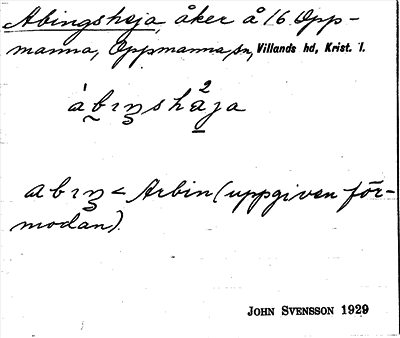 Abingshaja, åker å 16 Opp-
manna, Oppmanna sn, Villands hd, Krist. l.
àbıꞑshåja
2
abıꞑ < Arbin (uppgiven för-
modan).
JOHN SVENSSON 1929